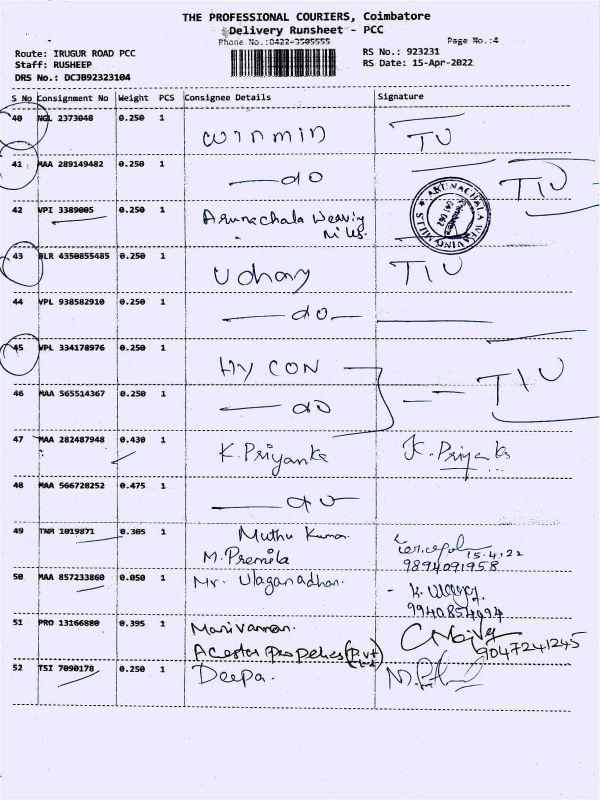 THE PROFESSIONAL COURIERS, Coimbatore
Delivery Runsheet - PCC
Phone No.:0422-3505555
Page No.:4
Route: IRUGUR ROAD PCC
RS No.: 923231
Staff: RUSHEEP
RS Date: 15-Apr-2022
DRS No.: DCJB92323104
S No Consignment No Weight PCS Consignee Details Signature
40 NGL 2373048 0.250 1
winmin
41 MAA 289149482 0.250 1
do
42 VPI 3389005 0.250 1 Arunachala Weaving
Mills.
ARUNACHALA WEAVING MILLS
43 BLR 4350855485 0.250 1
Udhay
44 VPL 938582910 0.250 1
do
45 VPL 334178976 0.250 1
HYCON
46 MAA 565514367 0.250 1
do
47 MAA 282487948 0.430 1
K. Priyanka K. Priyanka
48 MAA 566728252 0.475 1
do
49 TNM 1019871 0.305 1 Muthu Kumar
M. Premila 15.4.22
9894091958
50 MAA 857233860 0.050 1 Mr. Ulaganadhan.
9940854094
51 PRO 13166880 0.395 1 Manivannan.
9047241245
(Pvt Ltd)
52 TSI 7090178 0.250 1 Deepa.